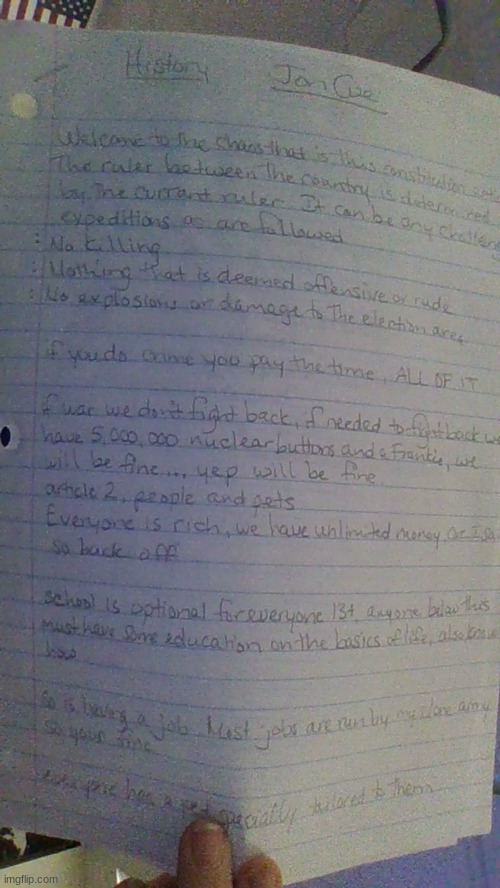 History Jan
Welcome to the chaos that is this constitution
The ruler between the country is determined
by the current ruler. It can be any challenge
expeditions as are followed
: No killing
: Nothing that is deemed offensive or rude
: No explosions or damage to the election area
if you do crime you pay the time, ALL OF IT
if war we don't fight back, if needed to fight back we
have 5,000,000 nuclear buttons and a Frankie, we
will be fine... yep will be fine
article 2, people and pets
Everyone is rich, we have unlimited money
so back off
school is optional for everyone 13+, anyone below this
must have some education on the basics of life, also know
how
so is having a job. Most jobs are run by my clone army
so your fine
everyone has a pet specially tailored to them
imgflip.com